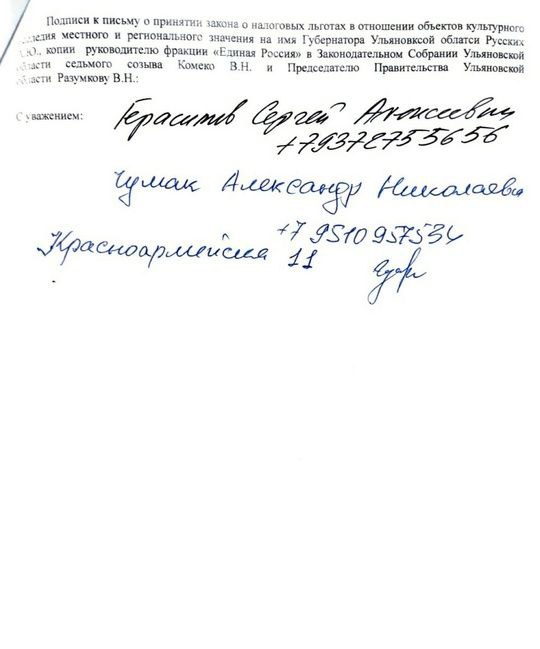 Подписи к письму о принятии закона о налоговых льготах в отношении объектов культурного
наследия местного и регионального значения на имя Губернатора Ульяновксой облатси Русских
А.Ю., копии руководителю фракции «Единая Россия» в Законодательном Собрании Ульяновской
области седьмого созыва Комеко В.Н. и Председателю Правительства Ульяновской
области Разумкову В.Н.:
С уважением:
Герасимов Сергей Алексеевич
+79372755656
Чумак Александр Николаеви
+79510957534
Красноармейская 11